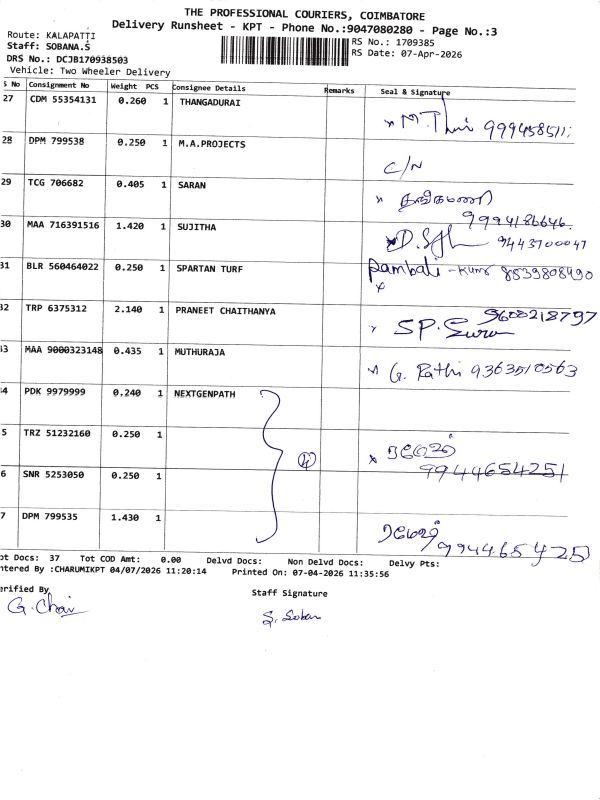 THE PROFESSIONAL COURIERS, COIMBATORE
Delivery Runsheet - KPT - Phone No.:9047080280 - Page No.:3
Route: KALAPATTI
RS No.: 1709385
Staff: SOBANA.S
RS Date: 07-Apr-2026
DRS No.: DCJB170938503
Vehicle: Two Wheeler Delivery
S No Consignment No Weight PCS Consignee Details Remarks Seal & Signature
27 CDM 55354131 0.260 1 THANGADURAI
28 DPM 799538 0.250 1 M.A.PROJECTS
C/N
29 TCG 706682 0.405 1 SARAN
தங்கமணி
9994186646
30 MAA 716391516 1.420 1 SUJITHA
9443700047
31 BLR 560464022 0.250 1 SPARTAN TURF
Pambali - Kumar 8539808490
32 TRP 6375312 2.140 1 PRANEET CHAITHANYA
9600218797
33 MAA 9000323148 0.435 1 MUTHURAJA
G. Rathi 9363510563
34 PDK 9979999 0.240 1 NEXTGENPATH
5 TRZ 51232160 0.250 1
ரமேஷ்
9944654251
6 SNR 5253050 0.250 1
4
7 DPM 799535 1.430 1
ரமேஷ்
994465425
pt Docs: 37 Tot COD Amt: 0.00 Delvd Docs: Non Delvd Docs: Delvy Pts:
ntered By :CHARUMIKPT 04/07/2026 11:20:14 Printed On: 07-04-2026 11:35:56
erified By
Staff Signature
S. Soban